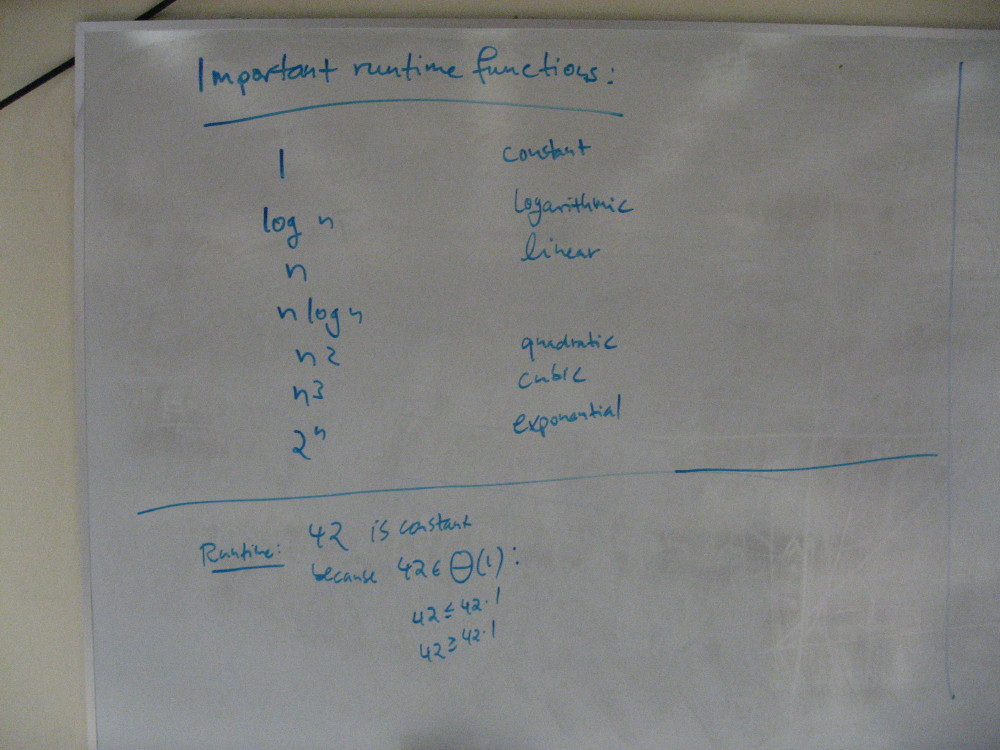 Important runtime functions:
1 constant
log n logarithmic
n linear
n log n
n2 quadratic
n3 cubic
2ⁿ exponential
Runtime: 42 is constant
because 42 ∈ Θ(1):
42 ≤ 42·1
42 ≥ 42·1